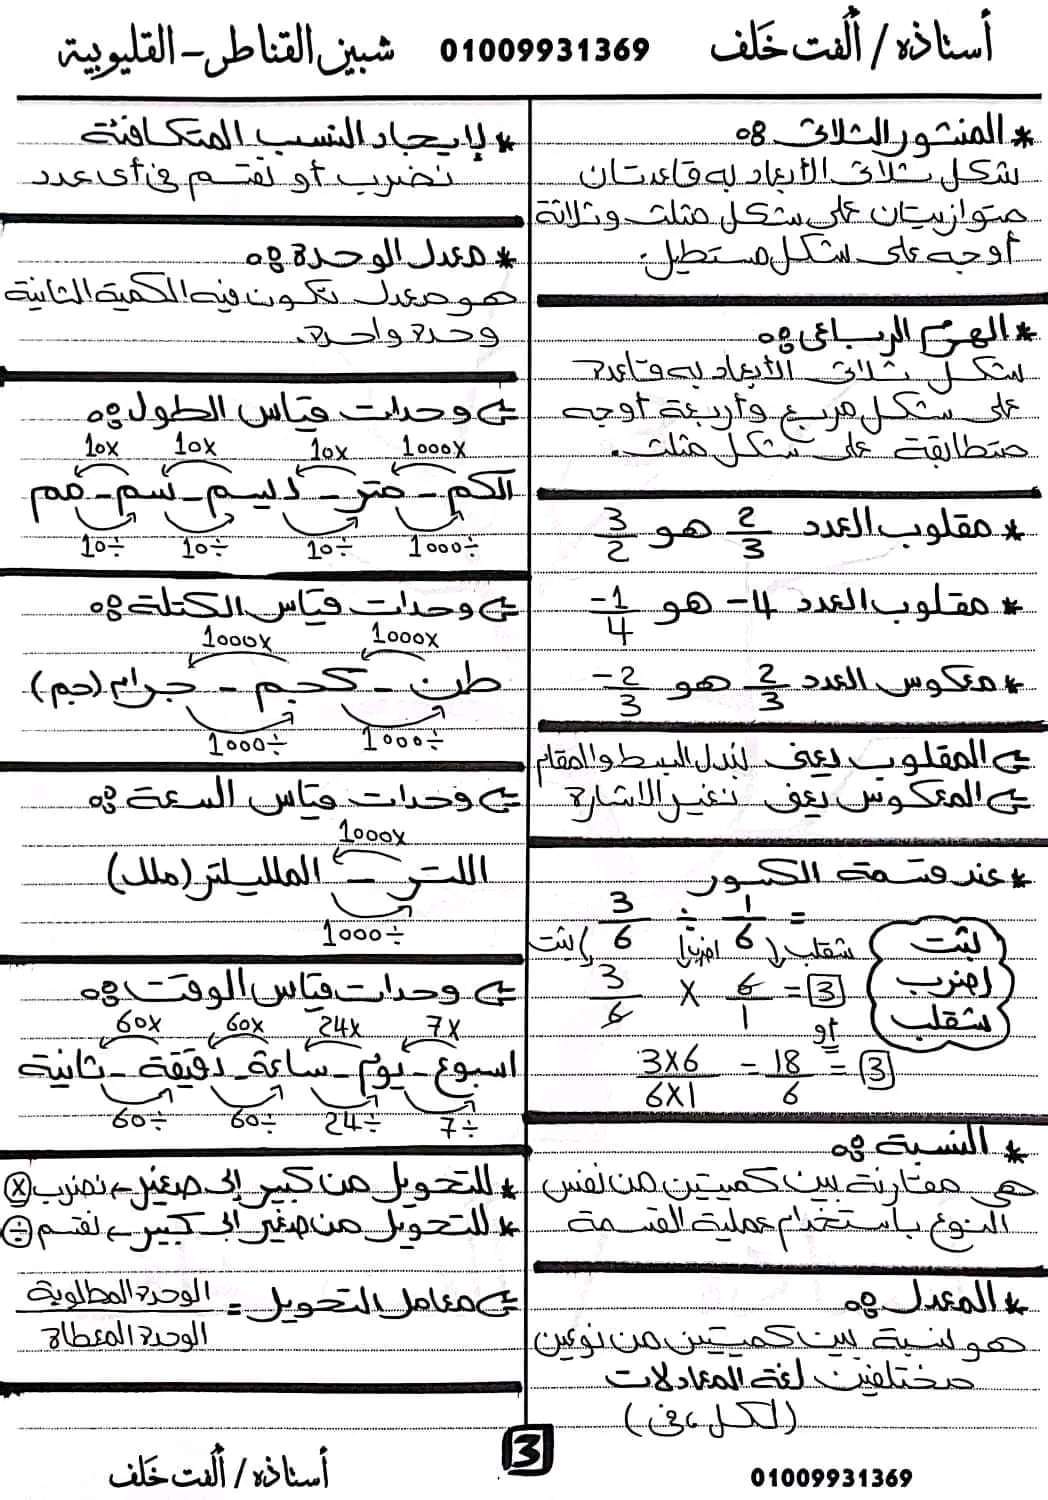 أستاذه/ ألفت خَلف 01009931369 شبين القناطر - القليوبية
* المنشور الثلاثى :
شكل ثلاثى الأبعاد به قاعدتان
متوازيتان على شكل مثلث وثلاثة
أوجه على شكل مستطيل.
* الهرم الرباعى :
شكل ثلاثى الأبعاد به قاعدة
على شكل مربع وأربعة أوجه
متطابقة على شكل مثلث.
* مقلوب العدد 2/3 هو 3/2
* مقلوب العدد 4- هو -1/4
* معكوس العدد 2/3 هو -2/3
المقلوب يعنى نبدل البسط والمقام
المعكوس يعنى نغير الاشارة
* عند قسمة الكسور
3/6 ÷ 1/6 =
ثبت اضرب شقلب
3/6 × 6/1 = 3
او
3×6/6×1 = 18/6 = 3
ثبت
اضرب
شقلب
* النسبة :
هى مقارنة بين كميتين من نفس
النوع باستخدام عملية القسمة
* المعدل :
هو نسبة بين كميتين من نوعين
مختلفين لغة المعادلات
(لكل ، فى)
* لإيجاد النسب المتكافئة
نضرب أو نقسم فى أى عدد
* معدل الوحدة :
هو معدل تكون فيه الكمية الثانية
وحدة واحدة.
وحدات قياس الطول :
1000x 10x 10x 10x
الكم - متر - ديسم - سم - مم
1000÷ 10÷ 10÷ 10÷
وحدات قياس الكتلة :
1000x 1000x
طن - كجم - جرام (جم)
1000÷ 1000÷
وحدات قياس السعة :
1000x
اللتر - الملليلتر (ملل)
1000÷
وحدات قياس الوقت :
7x 24x 60x 60x
اسبوع - يوم - ساعة - دقيقة - ثانية
7÷ 24÷ 60÷ 60÷
* للتحويل من كبير إلى صغير ← نضرب ×
* للتحويل من صغير إلى كبير ← نقسم ÷
معامل التحويل = الوحدة المطلوبة
الوحدة المعطاة
3
01009931369 أستاذه/ ألفت خَلف